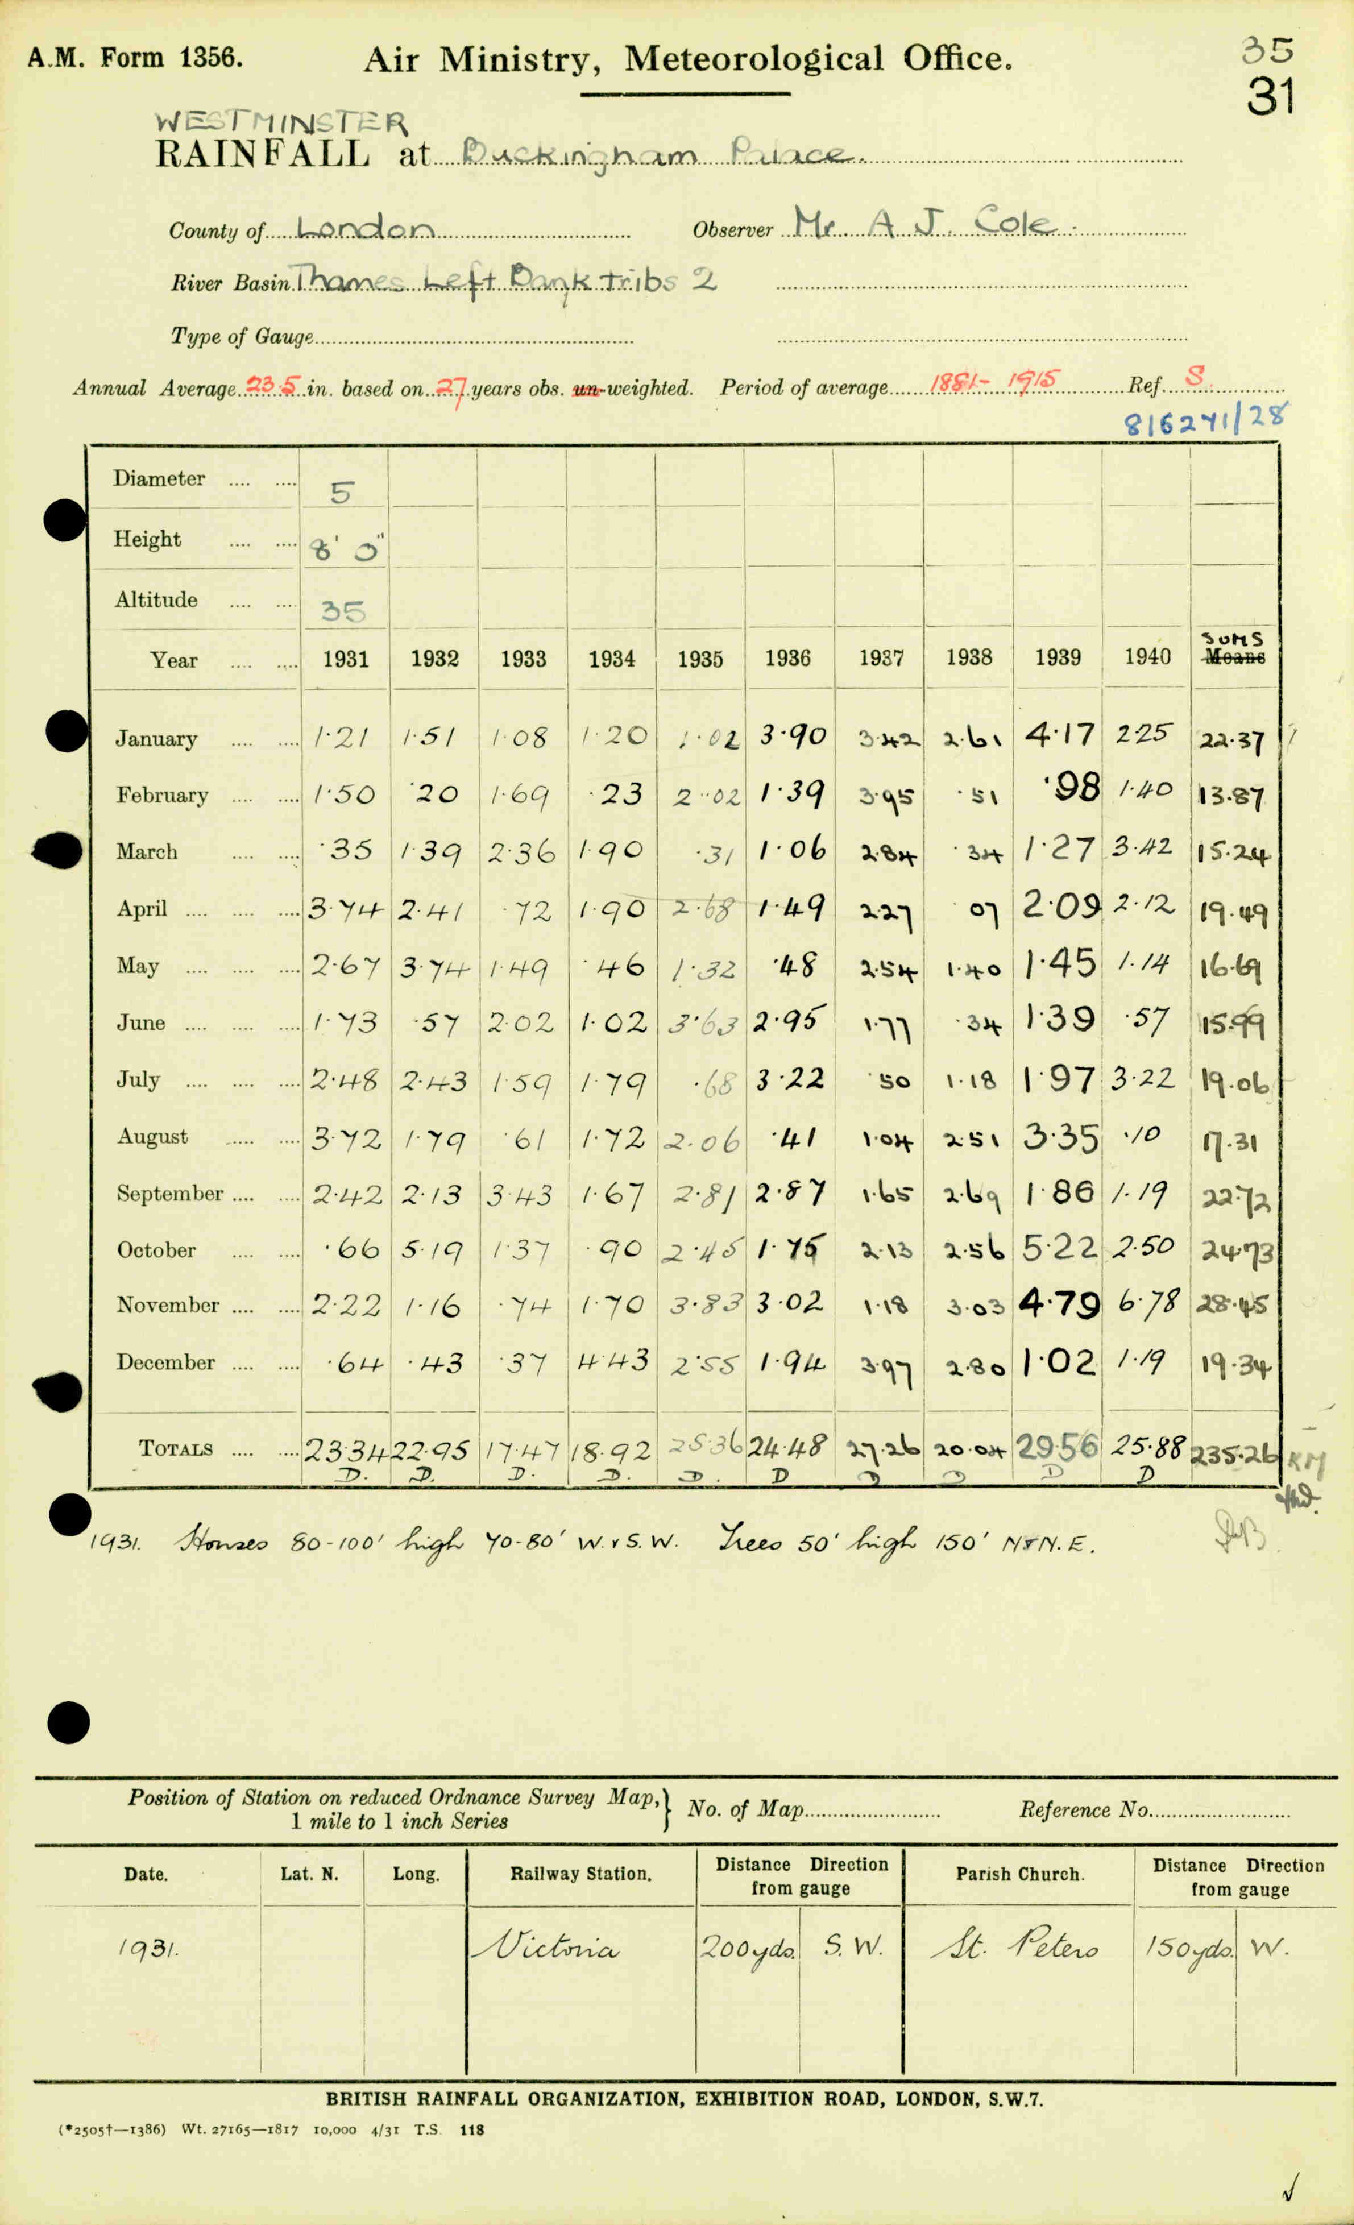 A.M. Form 1356. Air Ministry, Meteorological Office. 35
31
WESTMINSTER
RAINFALL at Buckingham Palace.
County of London Observer Mr. A. J. Cole.
River Basin Thames Left Bank tribs 2
Type of Gauge
Annual Average 23.5 in. based on 27 years obs. un-weighted. Period of average 1881-1915 Ref. S.
816241/28
Diameter 5
Height 8' 0"
Altitude 35
SUMS
Year 1931 1932 1933 1934 1935 1936 1937 1938 1939 1940 Means
January 1.21 1.51 1.08 1.20 1.02 3.90 3.42 2.61 4.17 2.25 22.37
February 1.50 .20 1.69 .23 2.02 1.39 3.95 .51 .98 1.40 13.87
March .35 1.39 2.36 1.90 .31 1.06 2.84 .34 1.27 3.42 15.24
April 3.74 2.41 .72 1.90 2.68 1.49 2.27 07 2.09 2.12 19.49
May 2.67 3.74 1.49 .46 1.32 .48 2.54 1.40 1.45 1.14 16.69
June 1.73 .57 2.02 1.02 3.63 2.95 1.77 .34 1.39 .57 15.99
July 2.48 2.43 1.59 1.79 .68 3.22 .50 1.18 1.97 3.22 19.06
August 3.72 1.79 .61 1.72 2.06 .41 1.04 2.51 3.35 .10 17.31
September 2.42 2.13 3.43 1.67 2.81 2.87 1.65 2.69 1.86 1.19 22.72
October .66 5.19 1.37 .90 2.45 1.75 2.13 2.56 5.22 2.50 24.73
November 2.22 1.16 .74 1.70 3.83 3.02 1.18 3.03 4.79 6.78 28.45
December .64 .43 .37 4.43 2.55 1.94 3.97 2.80 1.02 1.19 19.34
TOTALS 23.34 22.95 17.47 18.92 25.36 24.48 27.26 20.04 29.56 25.88 235.26 KM
D. D. D. D. D. D D D D D
1931. Houses 80-100' high 70-80' W. & S. W. Trees 50' high 150' N & N. E.
Position of Station on reduced Ordnance Survey Map,
1 mile to 1 inch Series } No. of Map Reference No.
Date. Lat. N. Long. Railway Station. Distance Direction from gauge Parish Church. Distance Direction from gauge
1931. Victoria 200yds. S. W. St. Peters 150yds. W.
BRITISH RAINFALL ORGANIZATION, EXHIBITION ROAD, LONDON, S.W.7.
(*2505†—1386) Wt. 27165—1817 10,000 4/31 T.S. 118